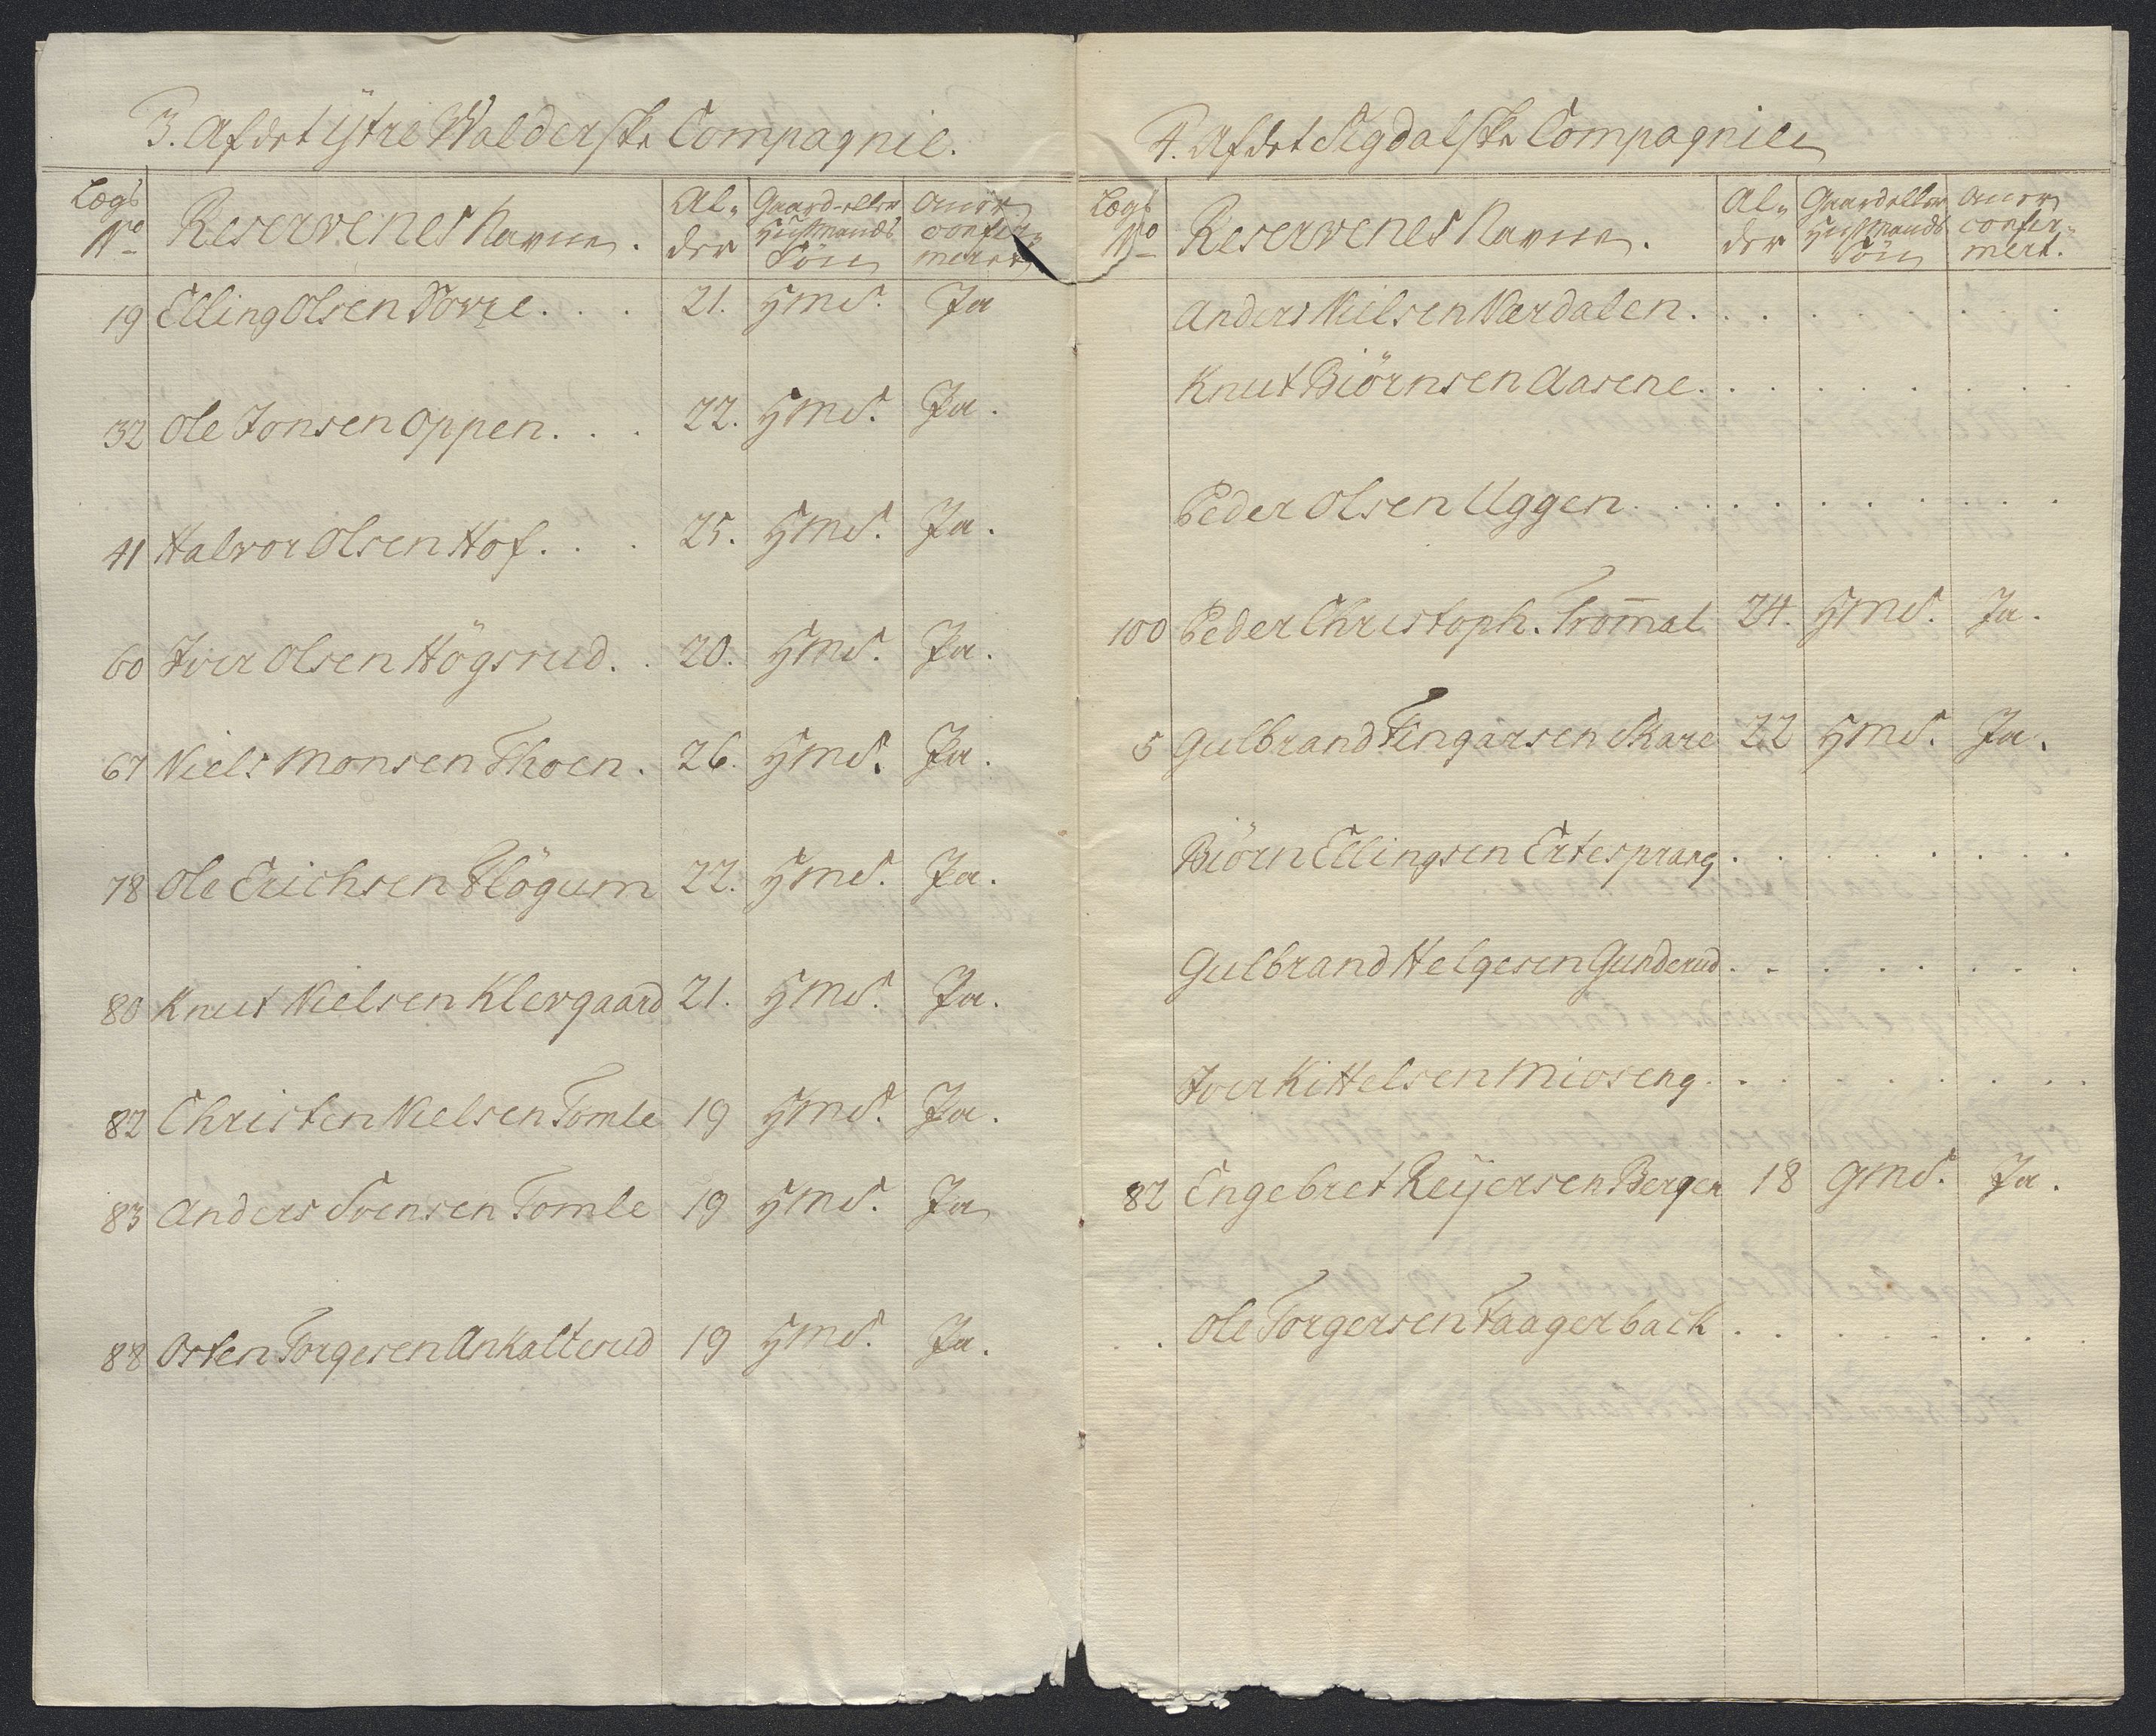 3. Af det ÿtre Walderske Compagnie.
Lægs No Reservenes Navne. Al- der Gaard- eller Huusmands Sön om er confir- meret
19 Elling Olsen Dovre . . . 21. HmS. Ja
32 Ole Jonsen Oppen. . . 22. HmS. Ja.
41 Halvor Olsen Hof. . . 25. HmS. Ja.
60 Iver Olsen Högsrud. . 20. HmS. Ja.
67 Niels Monsen Thoen. 26. HmS. Ja.
78 Ole Erichsen Flögum 22. HmS. Ja.
80 Knut Nielsen Klevgaard 21. HmS. Ja.
82 Christen Nielsen Tomle 19 HmS. Ja.
83 Anders Svensen Tomle 19 HmS. Ja
88 Osten Torgersen Ankalterud 19 HmS. Ja.
4. Af det Sigdalske Compagnie
Lægs No Reservenes Navne. Al- der Gaard eller Huusmands Sön om er confir- mert.
Anders Nielsen Værdalen. . . . . . . .
Knut Biörnsen Aasene. . . . . . . .
Peder Olsen Uggen. . . . . . . .
100 Peder Christoph. Trom̄al 24. HmS. Ja.
5 Gulbrand Fingarsen Skare 22 HmS. Ja.
Biörn Ellingsen Ertesprang . . . . . . . .
Gulbrand Helgesen Gunderud . . . . . . .
Iver Kittelsen Mioseng . . . . . . . .
82 Engebret Reijersen Bergen 18 GmS. Ja.
. . Ole Torgersen Faagerback . . . . . . . .